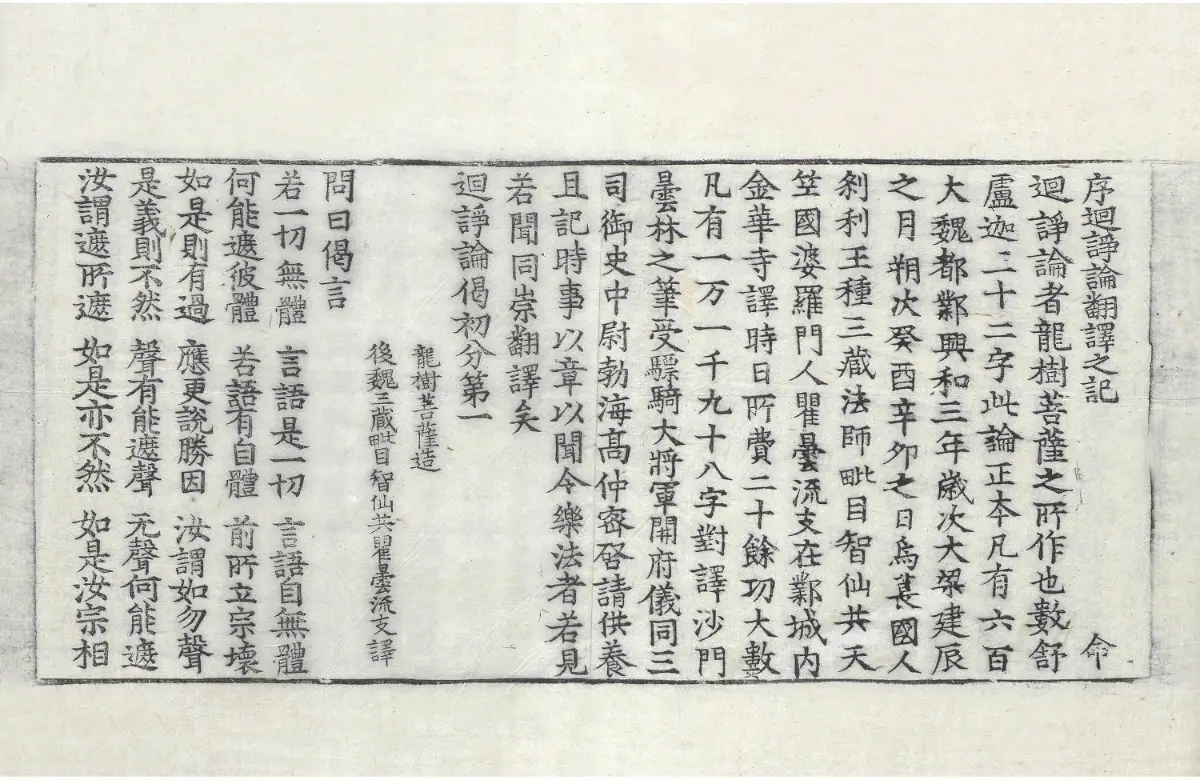 序迴諍論翻譯之記 命
迴諍論者龍樹菩薩之所作也數舒
盧迦三十二字此論正本凡有六百
大魏都鄴興和三年歲次大梁建辰
之月朔次癸酉辛夘之日烏萇國人
剎利王種三藏法師毗目智仙共天
竺國婆羅門人瞿曇流支在鄴城内
金華寺譯時日所費二十餘功大數
凡有一万一千九十八字對譯沙門
曇林之筆受驃騎大將軍開府儀同三
司御史中尉勃海髙仲宻啓請供養
且記時事以章以聞令樂法者若見
若聞同崇翻譯矣
迴諍論偈初分第一
龍樹菩薩造
後魏三藏毗目智仙共瞿曇流支譯
問曰偈言
若一切無體 言語是一切 言語自無體
何能遮彼體 若語有自體 前所立宗壞
如是則有過 應更說勝因 汝謂如勿聲
是義則不然 聲有能遮聲 无聲何能遮
汝謂遮所遮 如是亦不然 如是汝宗相